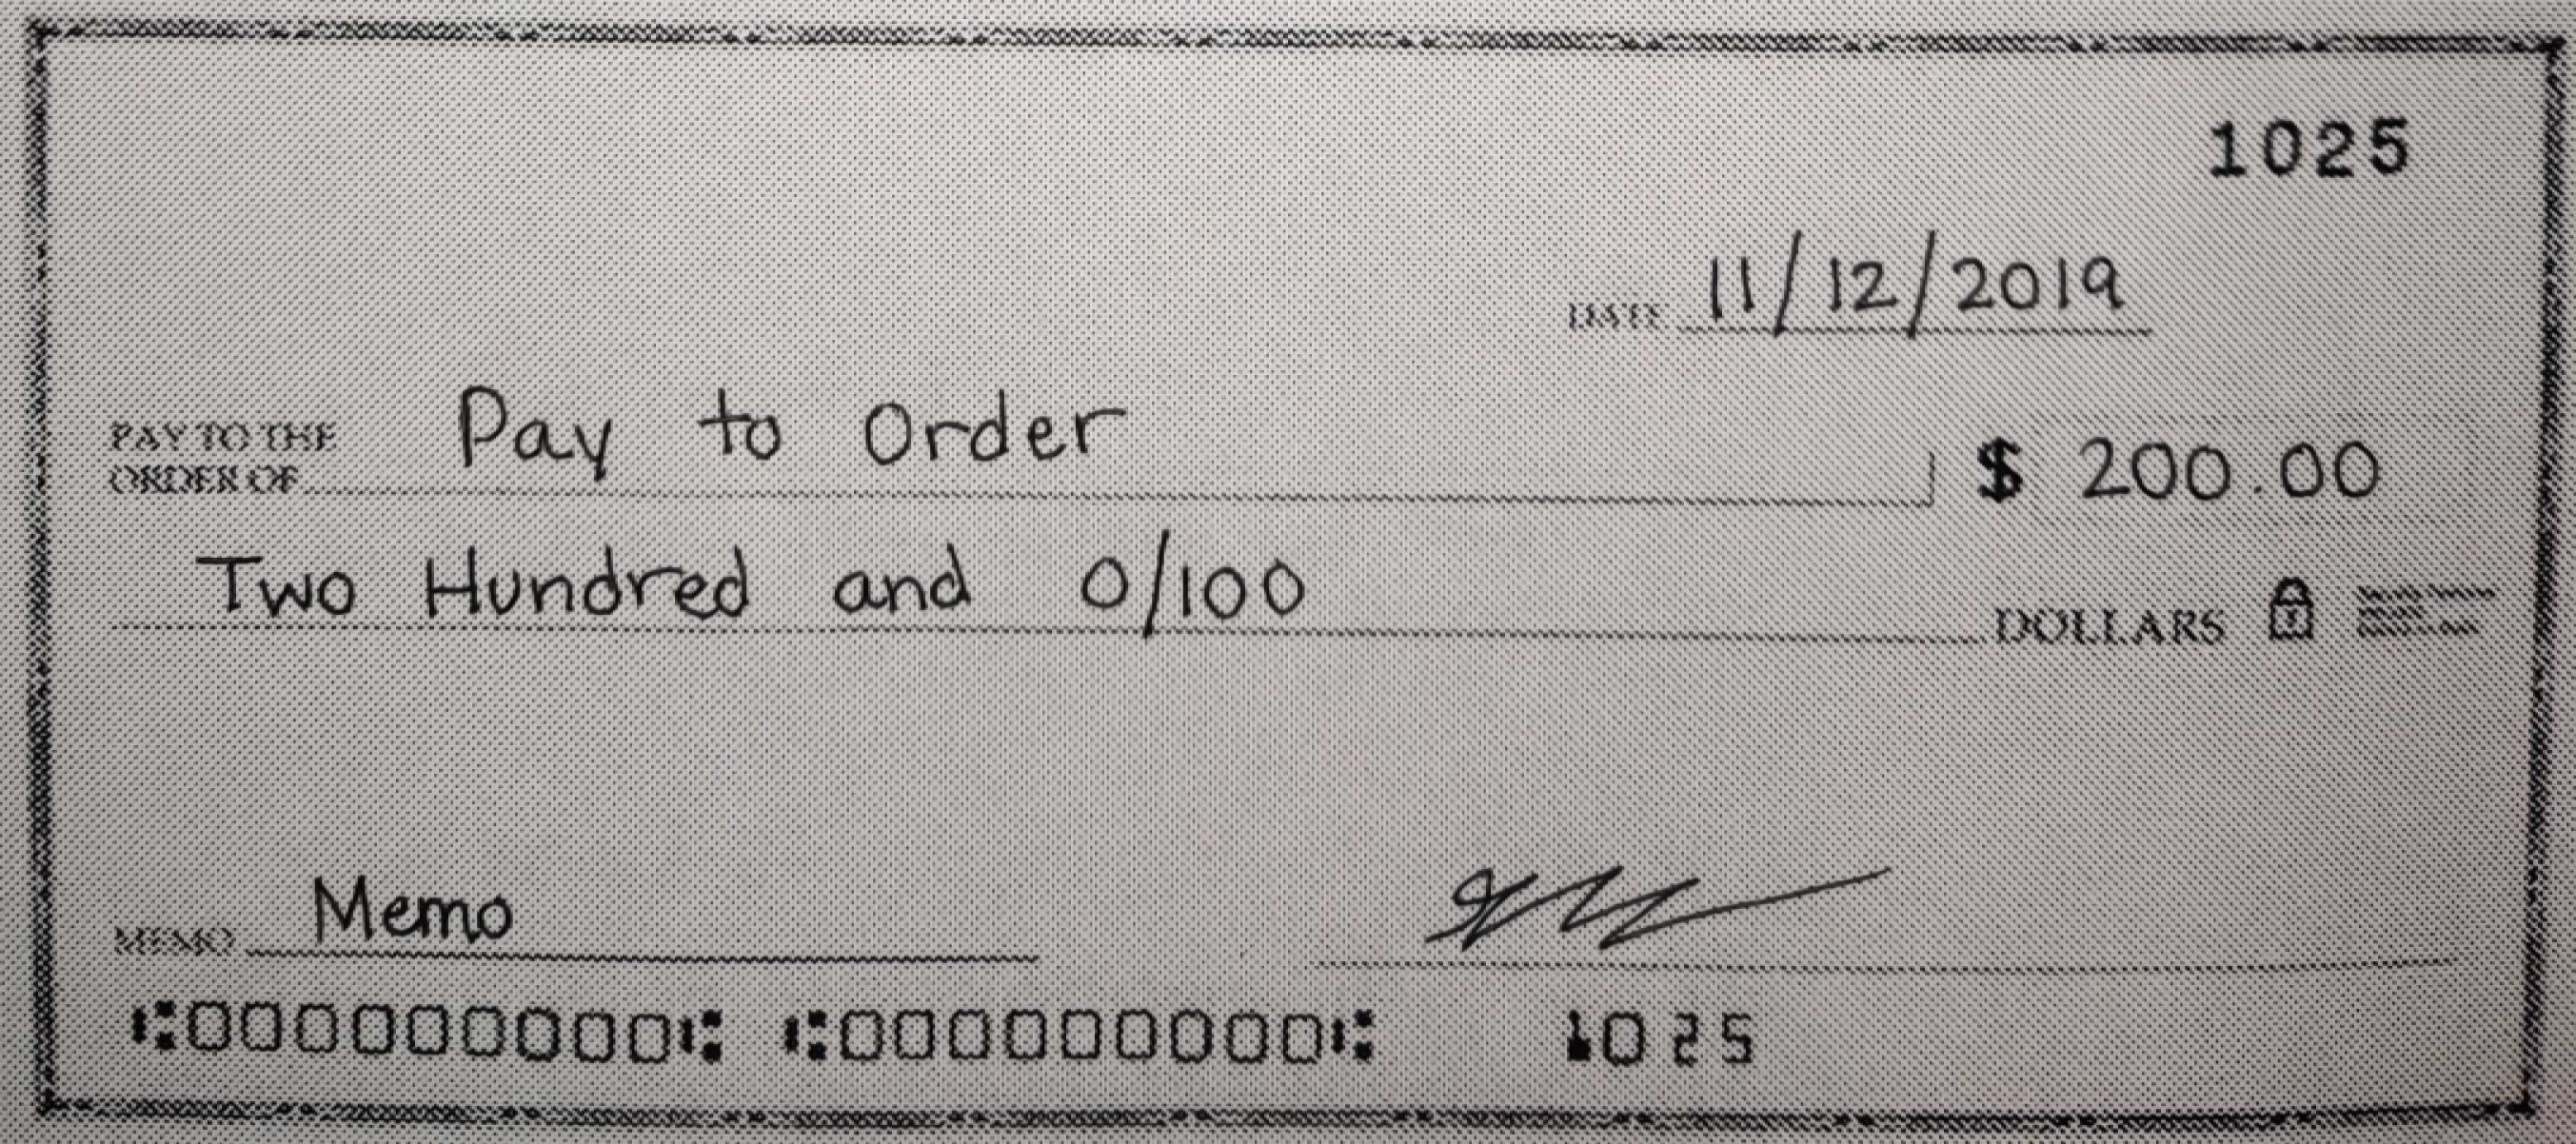 1025
DATE 11/12/2019
PAY TO THE
ORDER OF Pay to Order $ 200.00
Two Hundred and 0/100 DOLLARS
MEMO Memo
⑆000000000⑆ ⑆000000000⑆ 1025